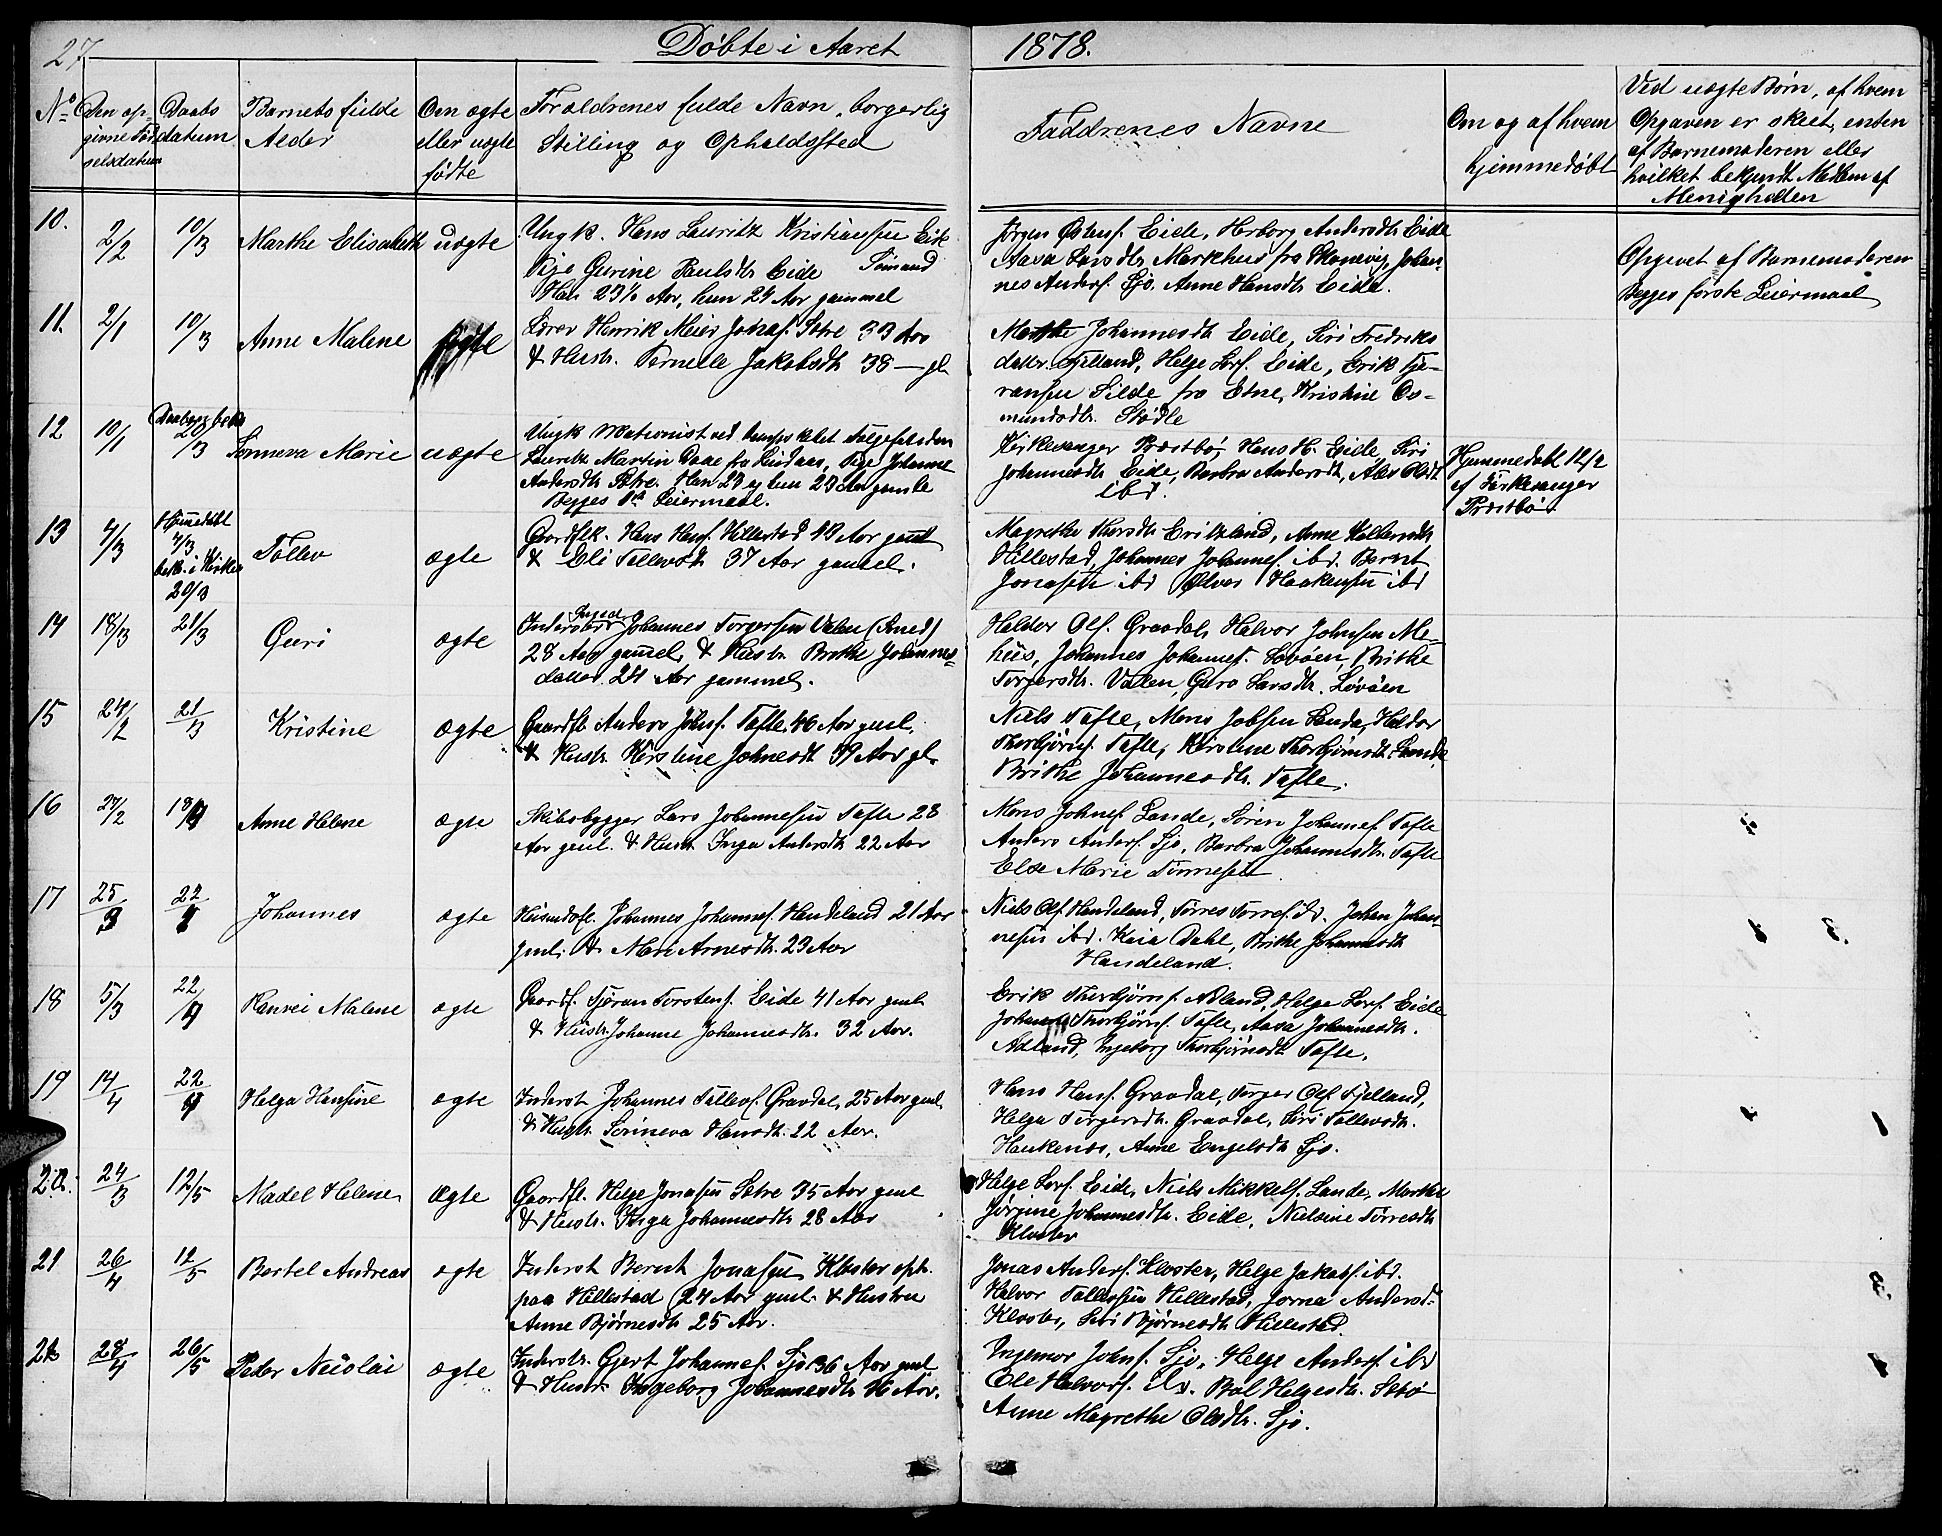 27 Döbte i Aaret 1878.
No Den op- Daabs Barnets fulde Om ægte Forældrenes fulde Navn, borgerlig Faddrenes Navne Om og af hvem Ved uægte Børn, af hvem
givne Föd datum eller uægte Stilling og Opholdssted hjemmedöbt Opgaven er skeet, enten
selsdatum födte af Barnemoderen eller
hvilket bekjendt Medlem af
Menigheden
10. 2/2 10/3 Marthe Elisabeth uægte Ungk. Hans Lauritz Kristiansen Eide
Pige Gurine Paulsdtr Eide Sömand
Han 23½ Aar, hun 24 Aar gammel
Jörgen Östens. Eide, Herborg Andersdtr Eide
Aasa Larsdtr Markhus fra Skonevig, Johan-
nes Anders. Sjo. Anne Hansdtr Eide.
Opgivet af Barnemoderen
Begges förste Leiermaal
11. 2/1 10/3 Anne Malene ægte Lærer Henrik Meier Jonas. Sætre 33 Aar
& Hustr. Pernelle Jakobsdtr 38 — gl.
Marthe Johannesdtr Eide, Siri Fredriks
datter Fjelland, Helge Lars. Eide, Erik Gje-
ransen Silde fra Etne, Kristine Os-
mundsdtr. Stödle
12 10/1 /3 Sönneva Marie uægte Ungk Mationist ved
Lauritz Martin Daae fra Lindaas, Pige Johanne
Andersdtr Sætre. Han 23 og hun 23 Aar gamle
Begges 1ste Leiermaal.
Kirkesanger Præstbö, Hans H. Eide, Siri
Johannesdtr Eide, Barbra Andersdtr,
ibd.
Hjemmedöbt 12/2
af Kirkesanger
Præstbö.
13 4/3 Hjemedöbt
4/3.
bek. i Kirken
20/3 Tollev ægte Gaardbr. Hans Hans. Hillestad 40 Aar gaml
& Eli Tollevsdtr 37 Aar gammel.
Magrethe Thorsdtr Eriksland, Anne
Hillestad, Johannes Johannes. ibd. Bernt
Jonasen ibd Ölver Haakensen ibd
14 18/3 21/3 Guri ægte Inderst Johannes Torgersen Valen (Smed)
28 Aar gammel, & Hustr Brithe Johannes-
datter 24 Aar gammel.
Haldor Ols. Graadal, Halvor Johnsen Me-
hüs, Johannes Johannes. Lövöen, Brithe
Torgersdtr. Valen, Guro Larsdtr. Lövöen
15 24/2 21/3 Kristine Ægte Gaardbr Anders Johs. Tofte 46 Aar gml.
& Hustr. Kirstine Johnesdtr 39 Aar gl.
Niels Tofte, Mons Jobsen Lande, Haldor
Thorbjörns. Tofte, Kirstine Thorbjörnsdtr. Lande
Brithe Johannesdtr. Tofte.
16 27/2 18/4 Anne Helene ægte Skibsbygger Lars Johannesen Tofte 28
Aar gml. & Hustr. Inga Andersdtr 22 Aar
Mons Johnes. Lande, Sören Johannes. Tofte
Anders Anders. Sjo, Barbra Johannesdtr. Tofte
Else Marie Tönnesen
17 25/3 22/4 Johannes ægte Husmdsfl. Johannes Johannes. Handeland 21 Aar
gml. & Mari Arnesdtr. 23 Aar
Niels Ols. Handeland, Torres Torres. ibd. Johan Johan-
nesen ibd. Kaia Dahl, Brithe Johannesdtr
Handeland.
18 5/3 22/4 Malene ægte Gaardfl. Sjöran Torstens. Eide 41 Aar gml
& Hustr. Johanne Johannesdtr. 32 Aar.
Erik Thorbjörns. Adland, Helge Lars. Eide
Johannes Thorbjörns. Tofte, Aasa Johannesdtr.
Adland, Ingeborg Thorbjörnsdtr Tofte.
19 14/4 22/4 Helga Hansine ægte Inderst Johannes Tollevs. Graadal, 25 Aar gml.
& Hustr. Sönneva Hansdtr. 22 Aar.
Hans Hans. Graadal, Torger Ols. Fjelland,
Helga Torgersdtr. Graadal, Siri Tollevsdtr.
Haukenæs, Anne Engelsdtr Sjo.
20. 24/3 12/5 Madel Helene Ægte Gaardfl. Helge Jonasen Sætre 35 Aar gml
& Hustr. Inga Johannesdtr 28 Aar
Helge Lars. Eide, Niels Mikkels. Lande, Marthe
Jörgine Johannesdtr. Eide, Nielsine Torresdtr
Kloster
21 26/4 12/5 Bertel Andreas ægte Inderst Bernt Jonasen Kloster oph.
paa Hillestad 24 Aar gml. & Hustru
Anne Björnesdtr 25 Aar.
Jonas Anders. Kloster, Helge Jakobs. ibd.
Halvor Tollevsen Hillestad, Jorna Andersd-
Kloster, Siri Björnesdtr Hillestad.
22 28/4 26/5 Peder Nicolai ægte Inderstr. Gjert Johannes. Sjo 36 Aar gml
& Hustr. Ingeborg Johannesdtr 36 Aar.
Ingemor Johns. Sjo, Helge Anders. ibd
Ole Halvors. ibd. Bol Helgesdtr. Sæbö
Anne Magrethe Olsdtr. Sjo.